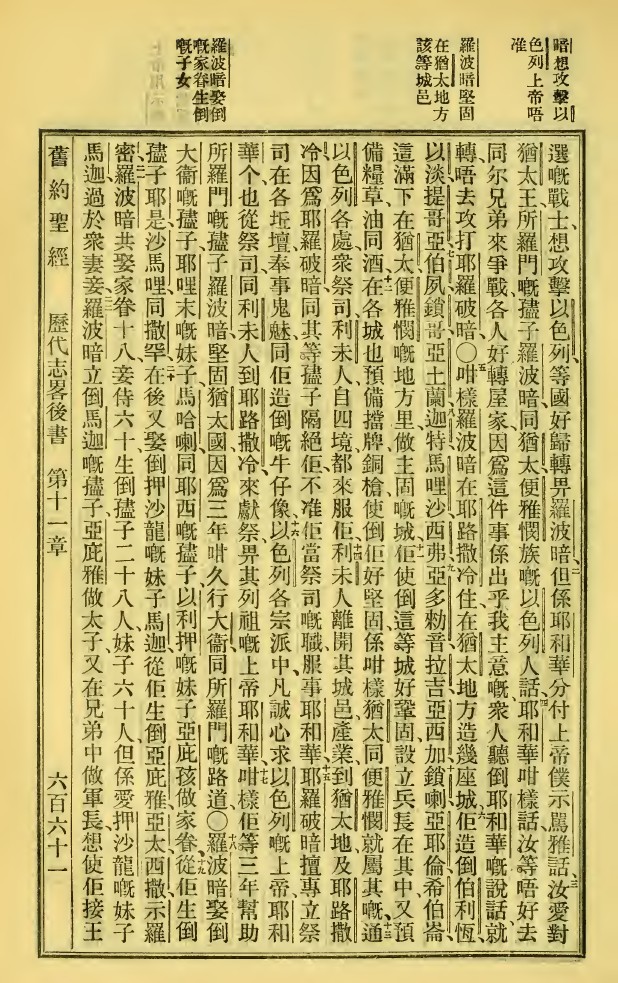 暗想攻擊以
色列上帝唔
准
羅波暗堅固
在猶太地方
該等城邑
羅波暗娶倒
嘅家眷生倒
嘅子女
選嘅戰士想攻擊以色列等國好歸轉畀羅波暗二但係耶和華分付上帝僕示罵雅話三汝愛對
猶太王所羅門嘅𡥧子羅波暗同猶太便雅憫族嘅以色列人話四耶和華咁樣話汝等唔好去
同尔兄弟來爭戰各人好轉屋家因爲這件事係出乎我主意嘅衆人聽倒耶和華嘅說話就
轉唔去攻打耶羅破暗〇五咁樣羅波暗在耶路撒冷住在猶太地方造幾座城六佢造倒伯利恆
以淡提哥亞七伯夙鎖哥亞土蘭八迦特馬哩沙西弗九亞多勑音拉吉亞西加十鎖喇亞耶倫希伯崙
這滿下在猶太便雅憫嘅地方里做主固嘅城十一佢使倒這等城好鞏固設立兵長在其中又預
備糧草油同酒十二在各城也預備擋牌銅槍使倒佢好堅固係咁樣猶太同便雅憫就屬其嘅十三通
以色列各處衆祭司利未人自四境都來服佢十四利未人離開其城邑產業到猶太地及耶路撒
冷因爲耶羅破暗同其等𡥧子隔絕佢不准佢當祭司嘅職服事耶和華十五耶羅破暗擅專立祭
司在各坵壇奉事鬼魅同佢造倒嘅牛仔像十六以色列各宗派中凡誠心求以色列嘅上帝耶和
華个也從祭司同利未人到耶路撒冷來獻祭畀其列祖嘅上帝耶和華十七咁樣佢等三年幫助
所羅門嘅𡥧子羅波暗堅固猶太國因爲三年咁久行大衞同所羅門嘅路道〇十八羅波暗娶倒
大衞嘅𡥧子耶哩末嘅妹子馬哈喇同耶西嘅𡥧子以利押嘅妹子亞庇孩做家眷十九從佢生倒
𡥧子耶是沙馬哩同撒罕二十在後又娶倒押沙龍嘅妹子馬迦從佢生倒亞庇雅亞太西撒示羅
密二一羅波暗共娶家眷十八妾侍六十生倒𡥧子二十八人妹子六十人但係愛押沙龍嘅妹子
馬迦過於衆妻妾二二羅波暗立倒馬迦嘅𡥧子亞庇雅做太子又在兄弟中做軍長想使佢接王
舊約聖經 歷代志畧後書 第十一章 六百六十一